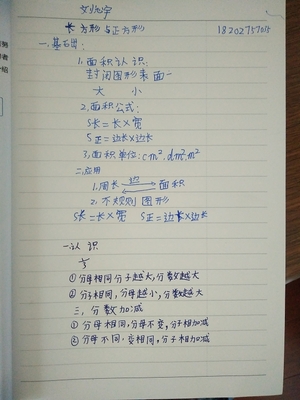 长方形与正方形
18202757015
一.基石田:
1.面积认识.
封闭图形表面一
大 小
2.面积公式:
S长=长×宽
S正=边长×边长
3.面积单位:cm².dm².m²
二.应用
1.周长 边 面积
2.不规则图形
S长=长×宽 S正=边长×边长
一认识
①分母相同分子越大,分数越大
②分子相同,分母越小,分数越大
三.分数加减
①分母相同,分母不变,分子相加减
②分母不同.变相同,分子相加减